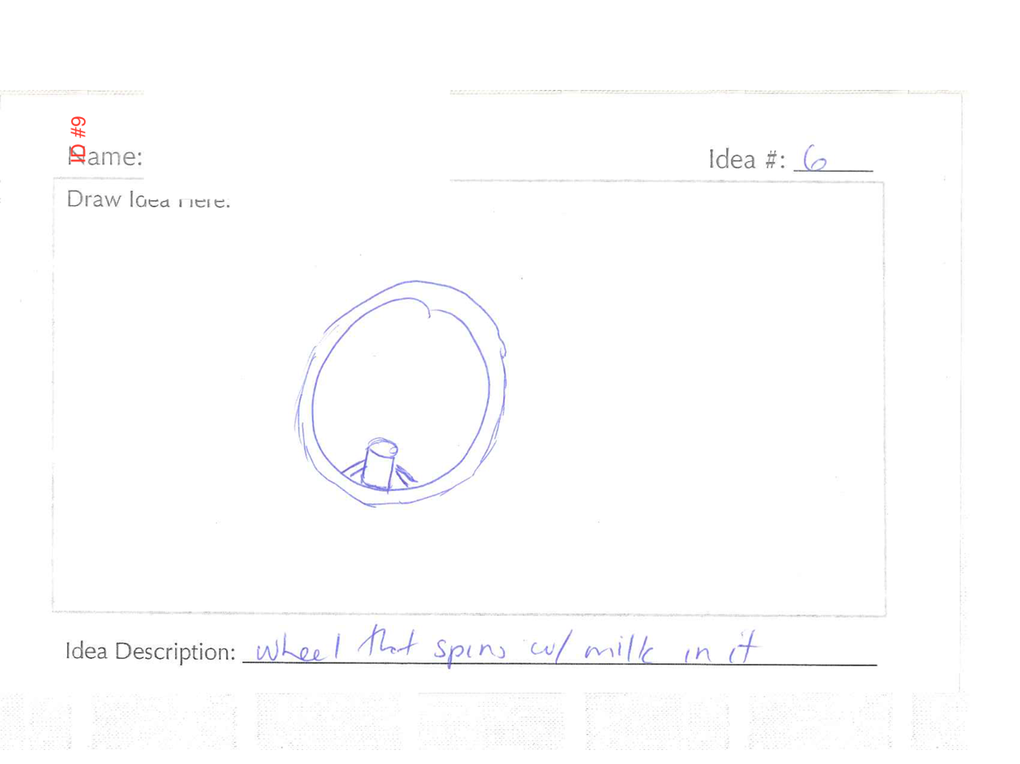 ID #9
Name:
Idea #: 6
Draw Idea Here:
Idea Description: wheel that spins w/ milk in it